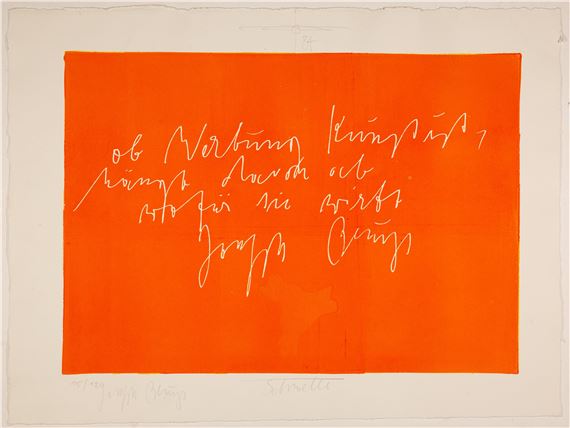 ob Werbung Kunst ist,
hängt davon ab
wofür sie wirbt
Joseph Beuys
Joseph Beuys